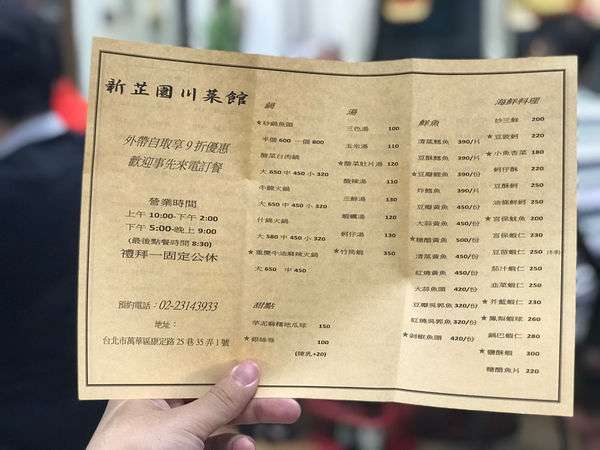 新芷園川菜館
外帶自取享9折優惠
歡迎事先來電訂餐
營業時間
上午 10:00-下午 2:00
下午 5:00-晚上 9:00
(最後點餐時間 8:30)
禮拜一固定公休
預約電話：02-23143933
地址：
台北市萬華區康定路25巷35弄1號
鍋
★砂鍋魚頭
半個 600 一個 800
酸菜白肉鍋
大 650 中 450 小 320
牛腩火鍋
大 650 中 450 小 320
什錦火鍋
大 580 中 450 小 320
★重慶牛油麻辣火鍋
大 650 中 450
湯
三色湯 100
玉米湯 110
★酸菜肚片湯 120
酸辣湯 110
三鮮湯 130
蛤蠣湯 120
蚵仔湯 130
★竹筒蝦 350
甜點
芋泥麻糬地瓜球 150
★銀絲卷 100
(煉乳+20)
鮮魚
清蒸鱈魚 390/片
豆酥鱈魚 390/片
★豆瓣鱈魚 390/片
炸鱈魚 390/片
豆瓣黃魚 450/份
大蒜黃魚 450/份
★糖醋黃魚 500/份
清蒸黃魚 450/份
紅燒黃魚 450/份
大蒜魚頭 420/份
豆瓣吳郭魚 320/份
紅燒吳郭魚 320/份
★剁椒魚頭 420/份
海鮮料理
炒三鮮 200
★豆豉蚵 220
★小魚杏菜 180
蚵仔酥 220
豆酥蚵 250
油條鮮蚵 250
★宮保魷魚 200
宮保蝦仁 250
豆苗蝦仁 250 (冬季)
茄汁蝦仁 250
韭菜蝦仁 250
★芥藍蝦仁 230
★鳳梨蝦球 260
鍋巴蝦仁 280
★鹽酥蝦 300
糖醋魚片 220